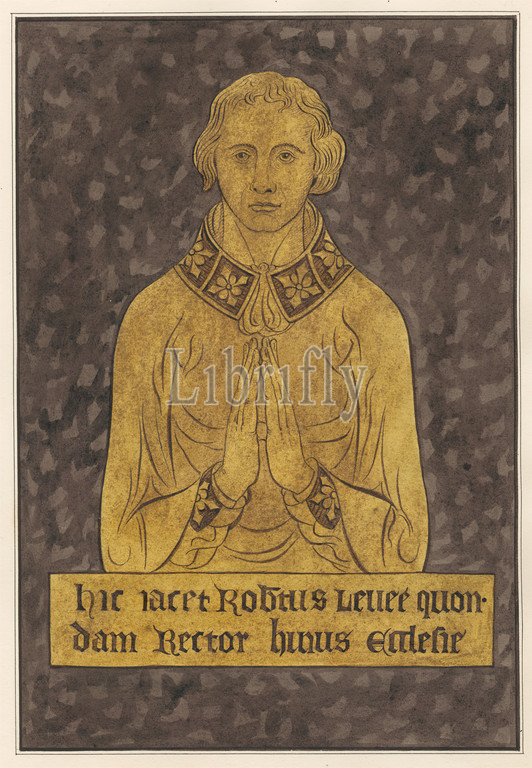 Librifly
hic iacet Robtus Leueé quon-
dam Rector huius Ecclesie